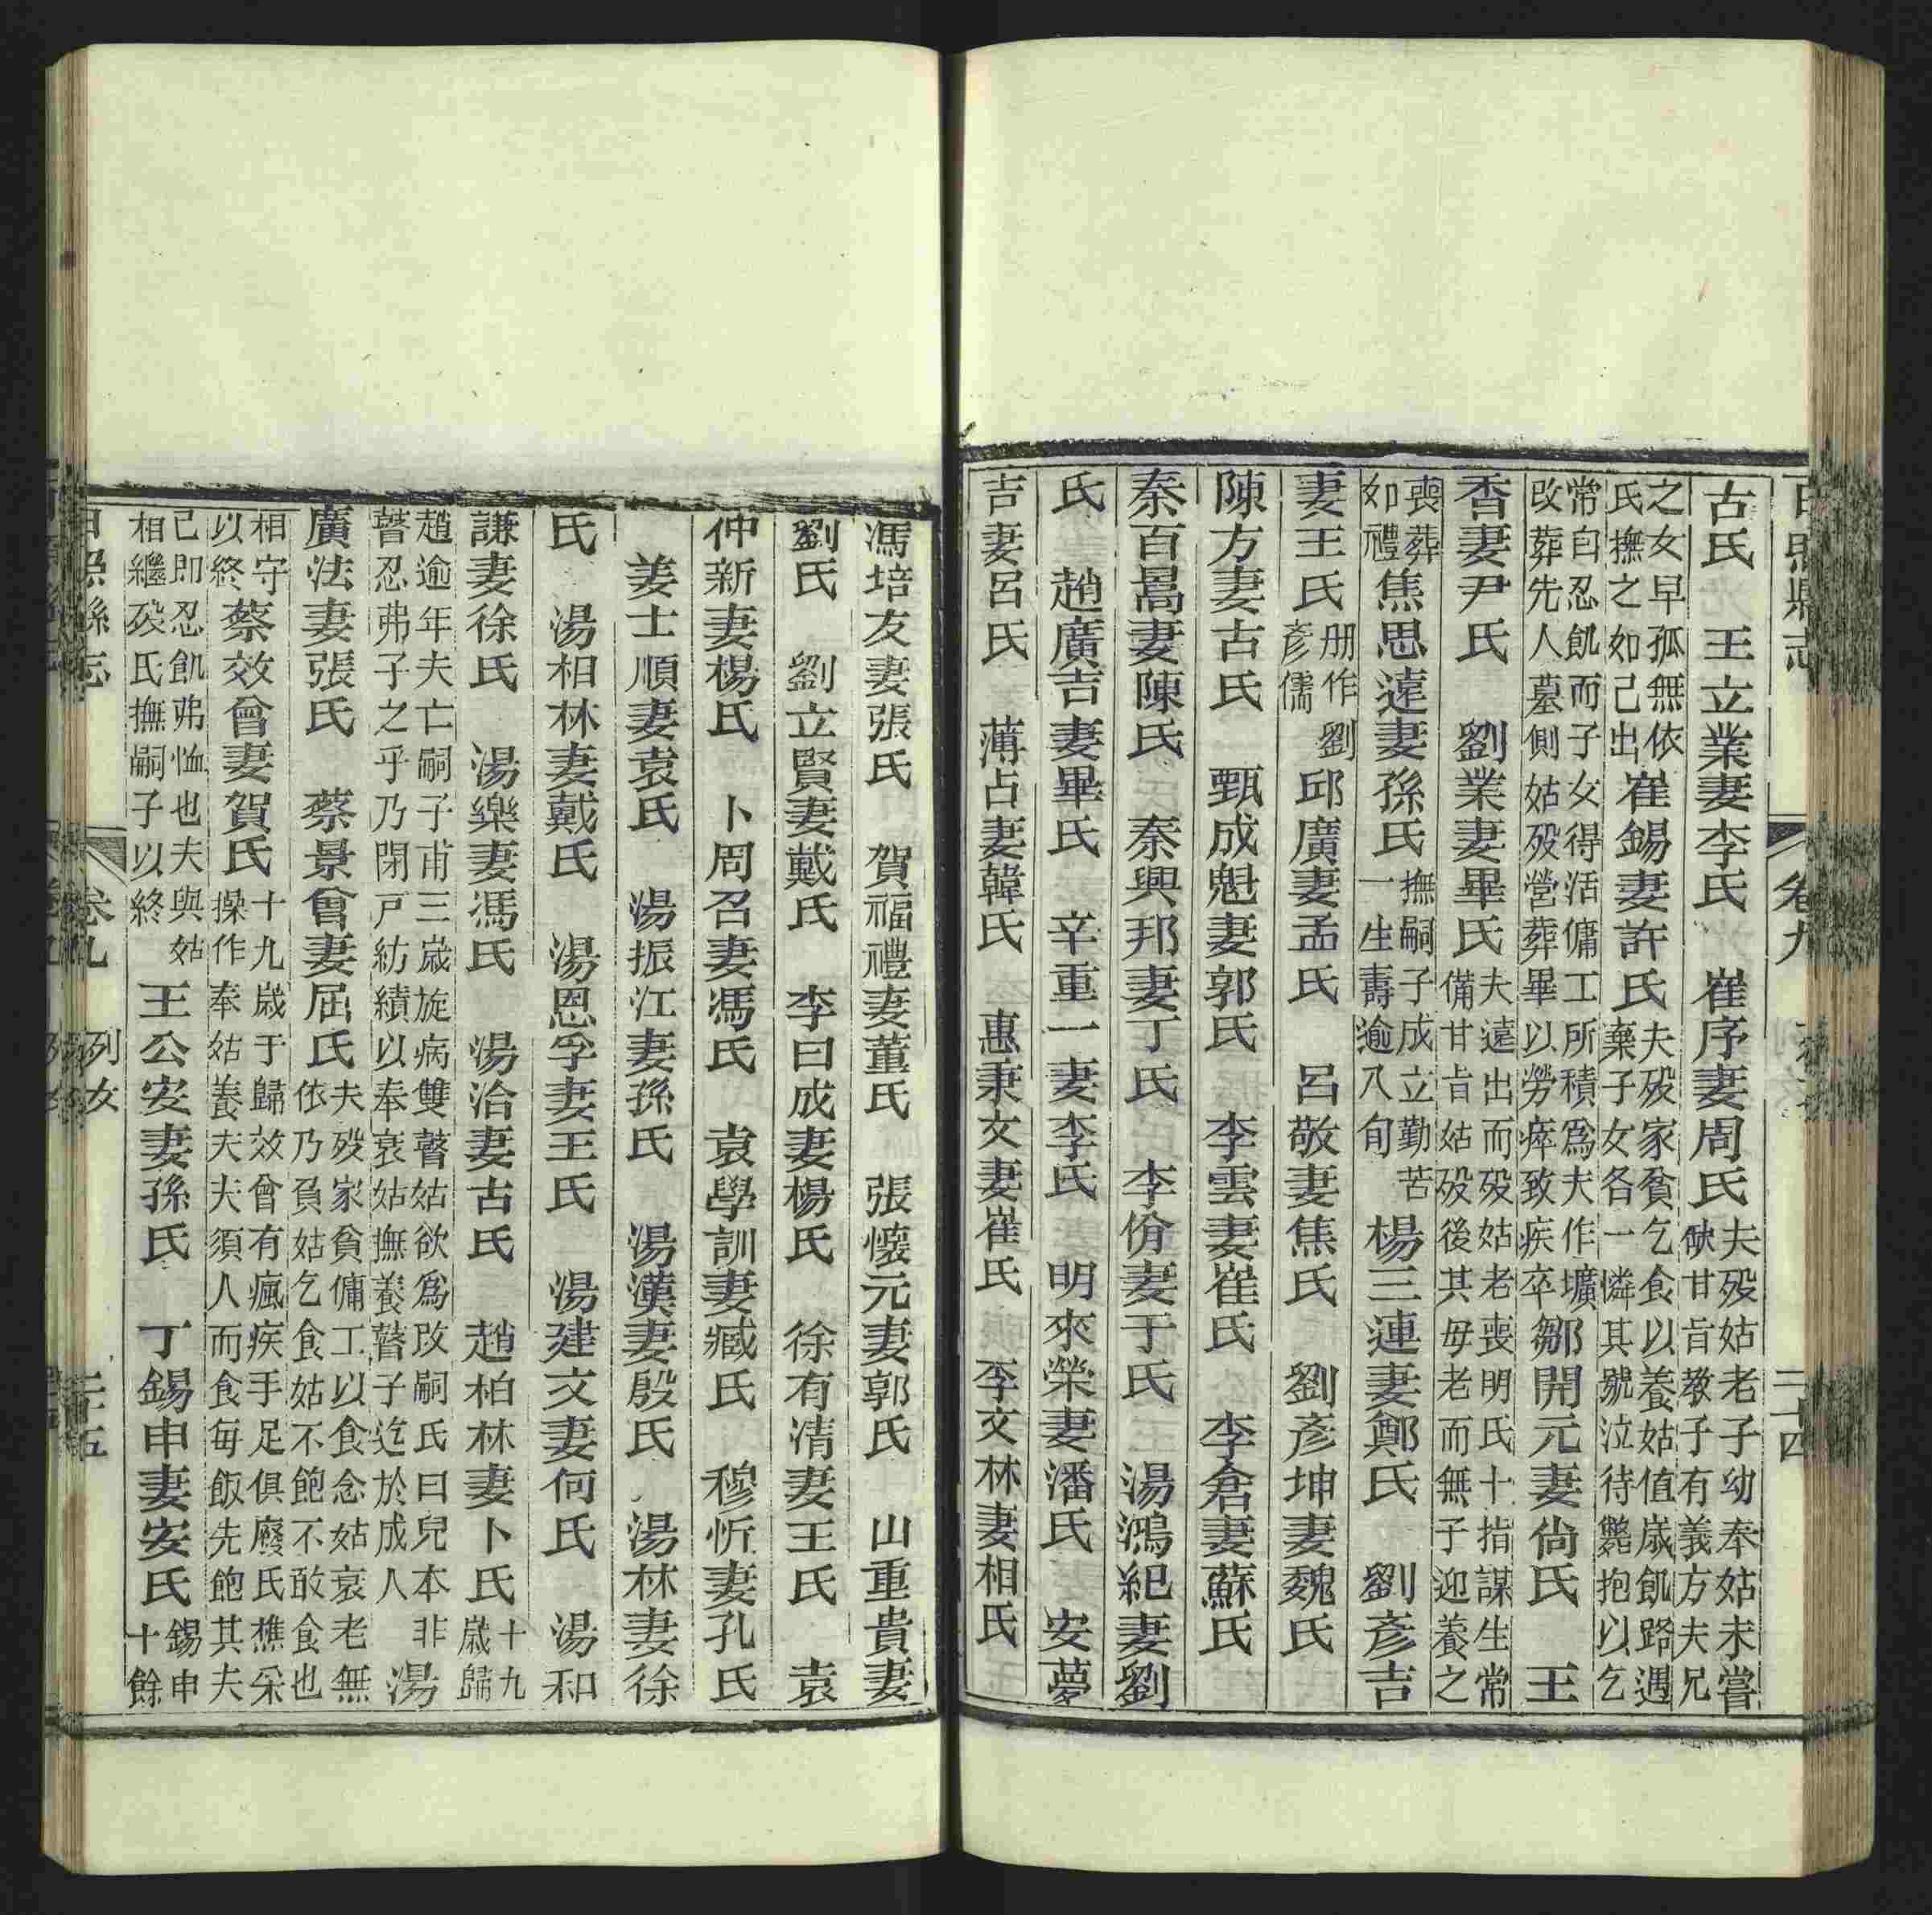 日照縣志 卷九 二十四
古氏 王立業妻李氏 崔序妻周氏 夫歿姑老子幼奉姑未嘗
缺甘旨教子有義方夫兄
之女早孤無依
氏撫之如己出 崔錫妻許氏 夫歿家貧乞食以養姑值歲飢路遇
棄子女各一憐其號泣待斃抱以乞
常自忍飢而子女得活傭工所積爲夫作壙
改葬先人墓側姑歿營葬畢以勞瘁致疾卒 鄒開元妻尙氏 王
香妻尹氏 劉業妻畢氏 夫遠出而歿姑老喪明氏十指謀生常
備甘旨姑歿後其母老而無子迎養之
喪葬
如禮 焦思遠妻孫氏 撫嗣子成立勤苦
一生壽逾八旬 楊三連妻鄭氏 劉彥吉
妻王氏 册作劉
彥儒 邱廣妻孟氏 呂敬妻焦氏 劉彥坤妻魏氏
陳方妻古氏 甄成魁妻郭氏 李雲妻崔氏 李倉妻蘇氏
秦百暠妻陳氏 秦興邦妻丁氏 李份妻于氏 湯鴻紀妻劉
氏 趙廣吉妻畢氏 辛重一妻李氏 明來榮妻潘氏 安夢
吉妻呂氏 薄占妻韓氏 惠秉文妻崔氏 李文林妻相氏
馮培友妻張氏 賀福禮妻董氏 張懷元妻郭氏 山重貴妻
劉氏 劉立賢妻戴氏 李曰成妻楊氏 徐有清妻王氏 袁
仲新妻楊氏 卜周召妻馮氏 袁學訓妻臧氏 穆忻妻孔氏
姜士順妻袁氏 湯振江妻孫氏 湯漢妻殷氏 湯林妻徐
氏 湯相林妻戴氏 湯恩孚妻王氏 湯建文妻何氏 湯和
謙妻徐氏 湯樂妻馮氏 湯洽妻古氏 趙柏林妻卜氏 十九
歲歸
趙逾年夫亡嗣子甫三歲旋病雙瞽姑欲爲改嗣氏曰兒本非
瞽忍弗子之乎乃閉戸紡績以奉衰姑撫養瞽子迄於成人 湯
廣法妻張氏 蔡景曾妻屈氏 夫歿家貧傭工以食念姑衰老無
依乃負姑乞食姑不飽不敢食也
相守
以終 蔡效曾妻賀氏 十九歲于歸效曾有瘋疾手足俱廢氏樵采
操作奉姑養夫夫須人而食每飯先飽其夫
己即忍飢弗恤也夫與姑
相繼歿氏撫嗣子以終 王公安妻孫氏 丁錫申妻安氏 錫申
十餘
日照縣志 卷九 列女 二十五